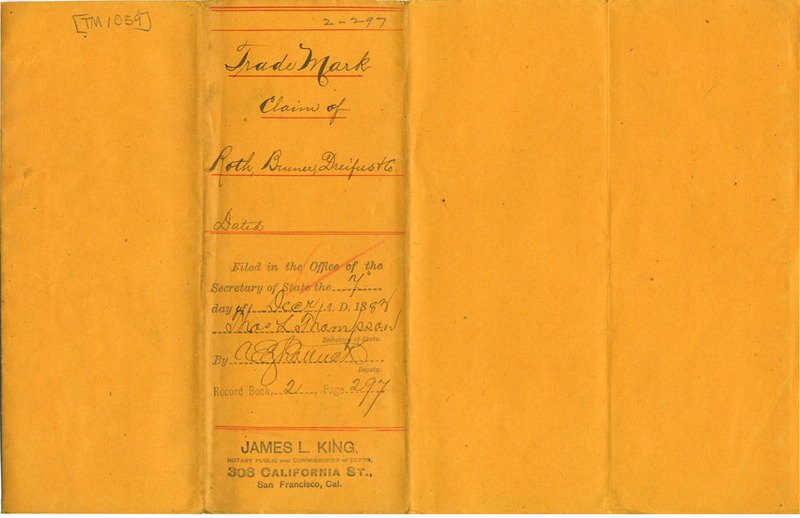 [TM 1059]
2-297
Trade Mark
Claim of
Roth, Bruner, Dreifus & Co.
Dated
Filed in the Office of the
Secretary of State the 7
day of Decr A. D. 188
Thos L. Thompson
Secretary of State.
By
Deputy.
Record Book, 2, Page 297
JAMES L. KING,
NOTARY PUBLIC and COMMISSIONER of DEEDS,
308 CALIFORNIA ST.,
San Francisco, Cal.